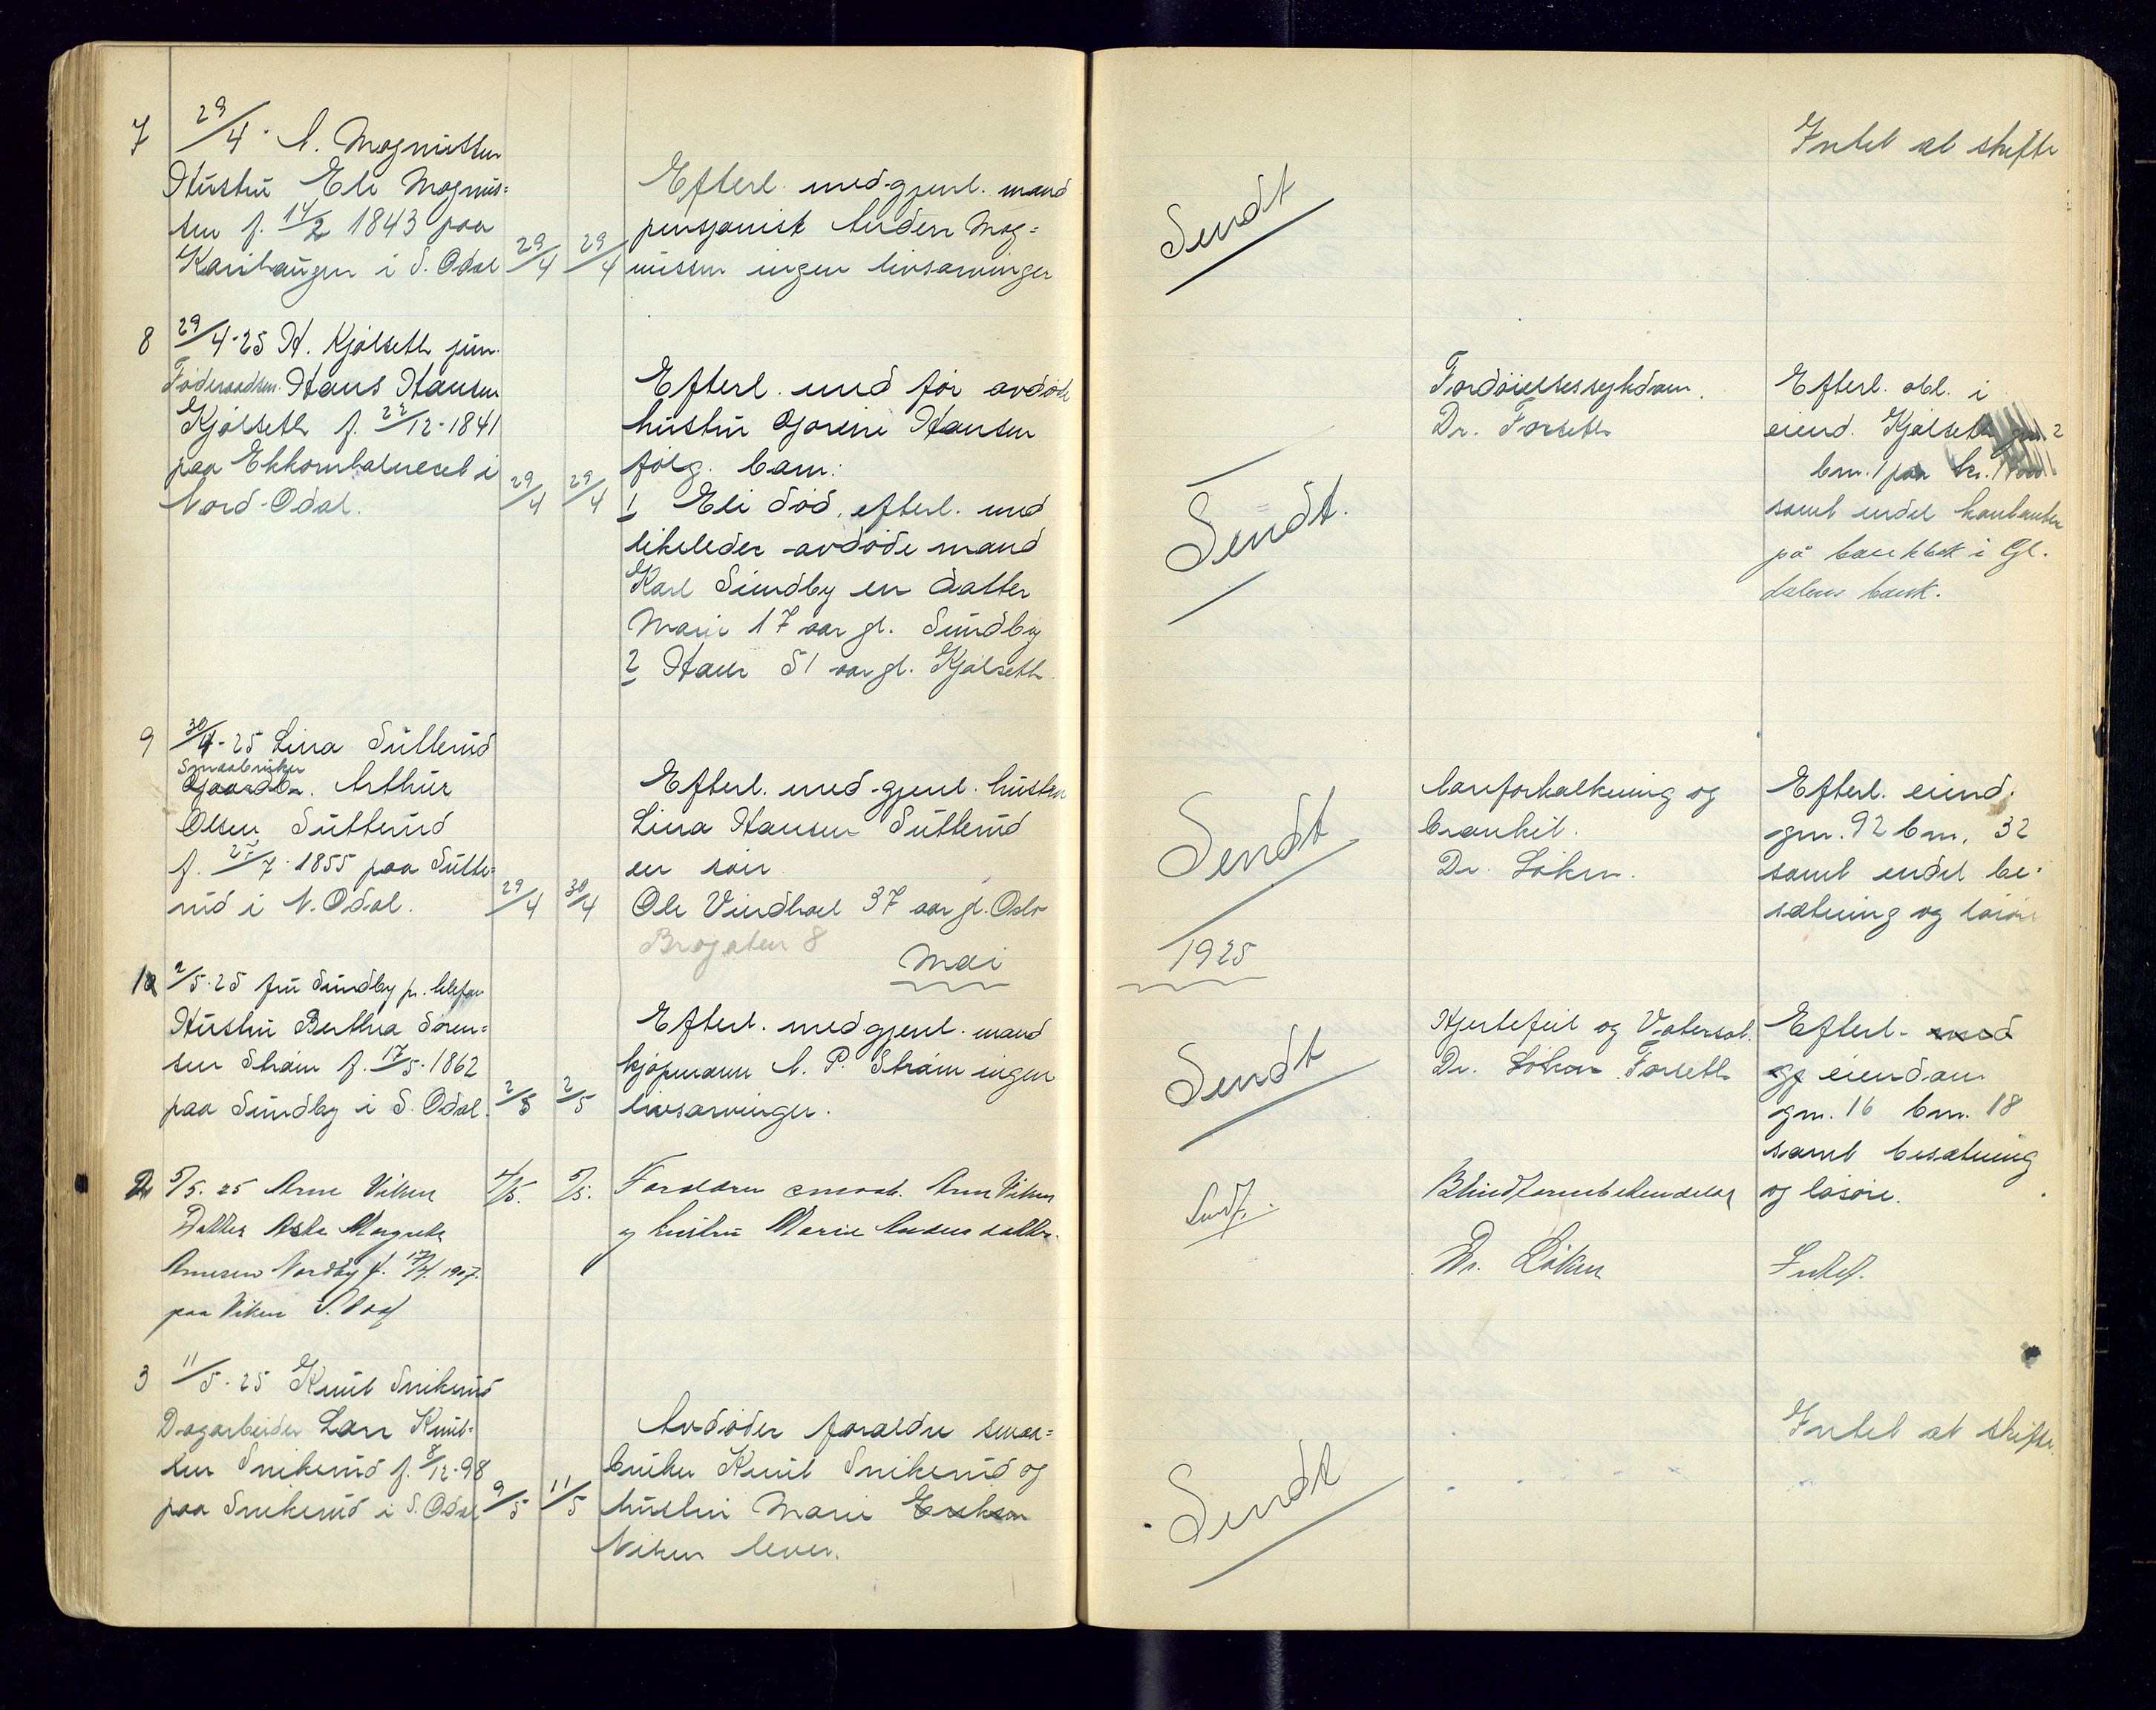 7 29/4. A. Magnussen
Hustru Eli Magnus=
sen f. 14/2 1843 paa
Karihaugen i S. Odal 29/4 29/4
Efterl. med gjenl. mand
pensjonist Anders Mag=
nussen ingen livsarvinger
Sendt
Intet at skifte
8 29/4-25 H. Kjølseth jun.
Føderaadsm. Hans Hansen
Kjølseth f. 22/12-1841
paa Ekkornholneset i
Nord-Odal. 29/4 29/4
Efterl. med før avdøde
hustru Gorine Hansen
følg. barn:
1 Eli død, efterl. med
likeledes avdøde mand
Karl Sundby en datter
Marie 17 aar gl. Sundby
2 Hans 51 aar gl. Kjølseth
Sendt.
Fordøielsessykdom.
Dr. Forseth
Efterl. obl. i
eiend. Kjølseth gm 2
bm. 1 paa kr.
samt endel kontanter
på bankbok i Gl.
dalens bank.
9 30/4-25 Lina Sutterud
Smaabruker
Gaardbr. Arthur
Olsen Sutterud
f. 27/7-1855 paa Sutte=
rud i N. Odal. 29/4 30/4
Efterl. med gjenl. hustru
Lina Hansen Sutterud
en søn
Ole Vindhol 37 aar gl. Oslo
Brogaten 8
Sendt
Aareforkalkning og
bronkit.
Dr. Løken.
Efterl. eiend.
gm. 92 bm. 32
samt endel be=
sætning og løsøre
Mai 1925
1 2/5-25 fru Sundby pr. telefon
Hustru Berthea Søren=
sen Strøm f. 17/5-1862
paa Sundby i S. Odal. 2/5 2/5
Efterl. med gjenl. mand
kjøpmann A. P. Strøm ingen
livsarvinger.
Sendt
Hjertefeil og Vatersot.
Dr. Løken Forseth
Efterl. med
gf eiendom
gm. 16 bm. 18
samt besætning
og løsøre.
2 5/5. 25 Arne Viken 4/5. 5/5.
Datter Asta Margrete
Arnesen Nordby f. 17/4. 1907.
paa Viken S. Odal
Forældre smaab. Arne Viken
og hustru Marie Andersdatter.
Sendt.
Blindtarmbetendelse
Dr. Løken
Intet.
3 11/5-25 Knut Snikerud
Dagarbeider Lars Knut=
sen Snikerud f. 8/12-98
paa Snikerud i S. Odal 9/5 11/5
Avdødes forældre smaa=
bruker Knut Snikerud og
hustru Marie Erikson
Viken lever.
Sendt
Intet at skifte.